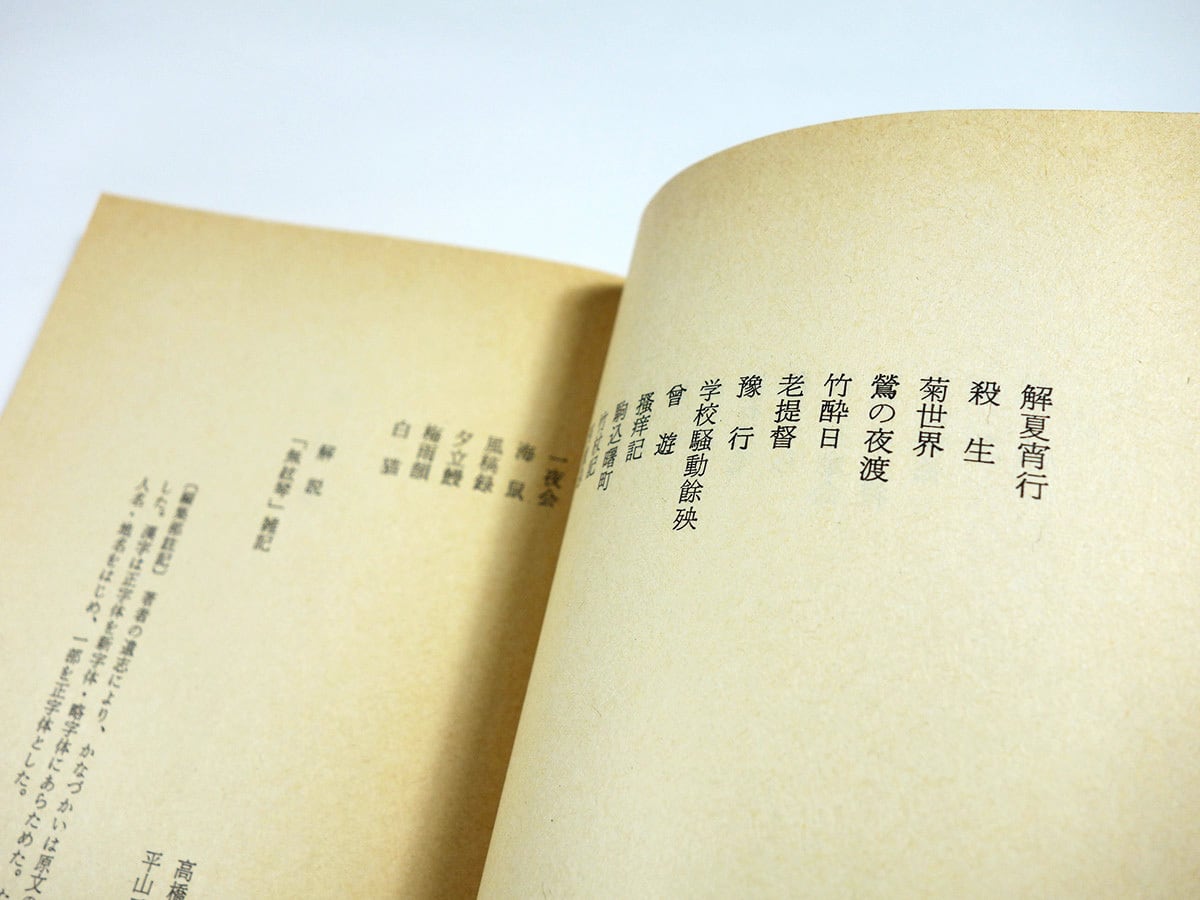 解夏宵行
殺生
菊世界
鶯の夜渡
竹酔日
老提督
豫行
学校騒動餘殃
曾遊
搔痒記
駒込曙町
竹杖記
一夜会
海鼠
風稿録
夕立鰻
梅雨韻
白猫
解説
「無絃琴」雑記
高橋
平山
〔編集部註記〕 著者の遺志により、かなづかいは原文の
した。漢字は正字体を新字体・略字体にあらためた。
人名、地名をはじめ、一部を正字体とした。